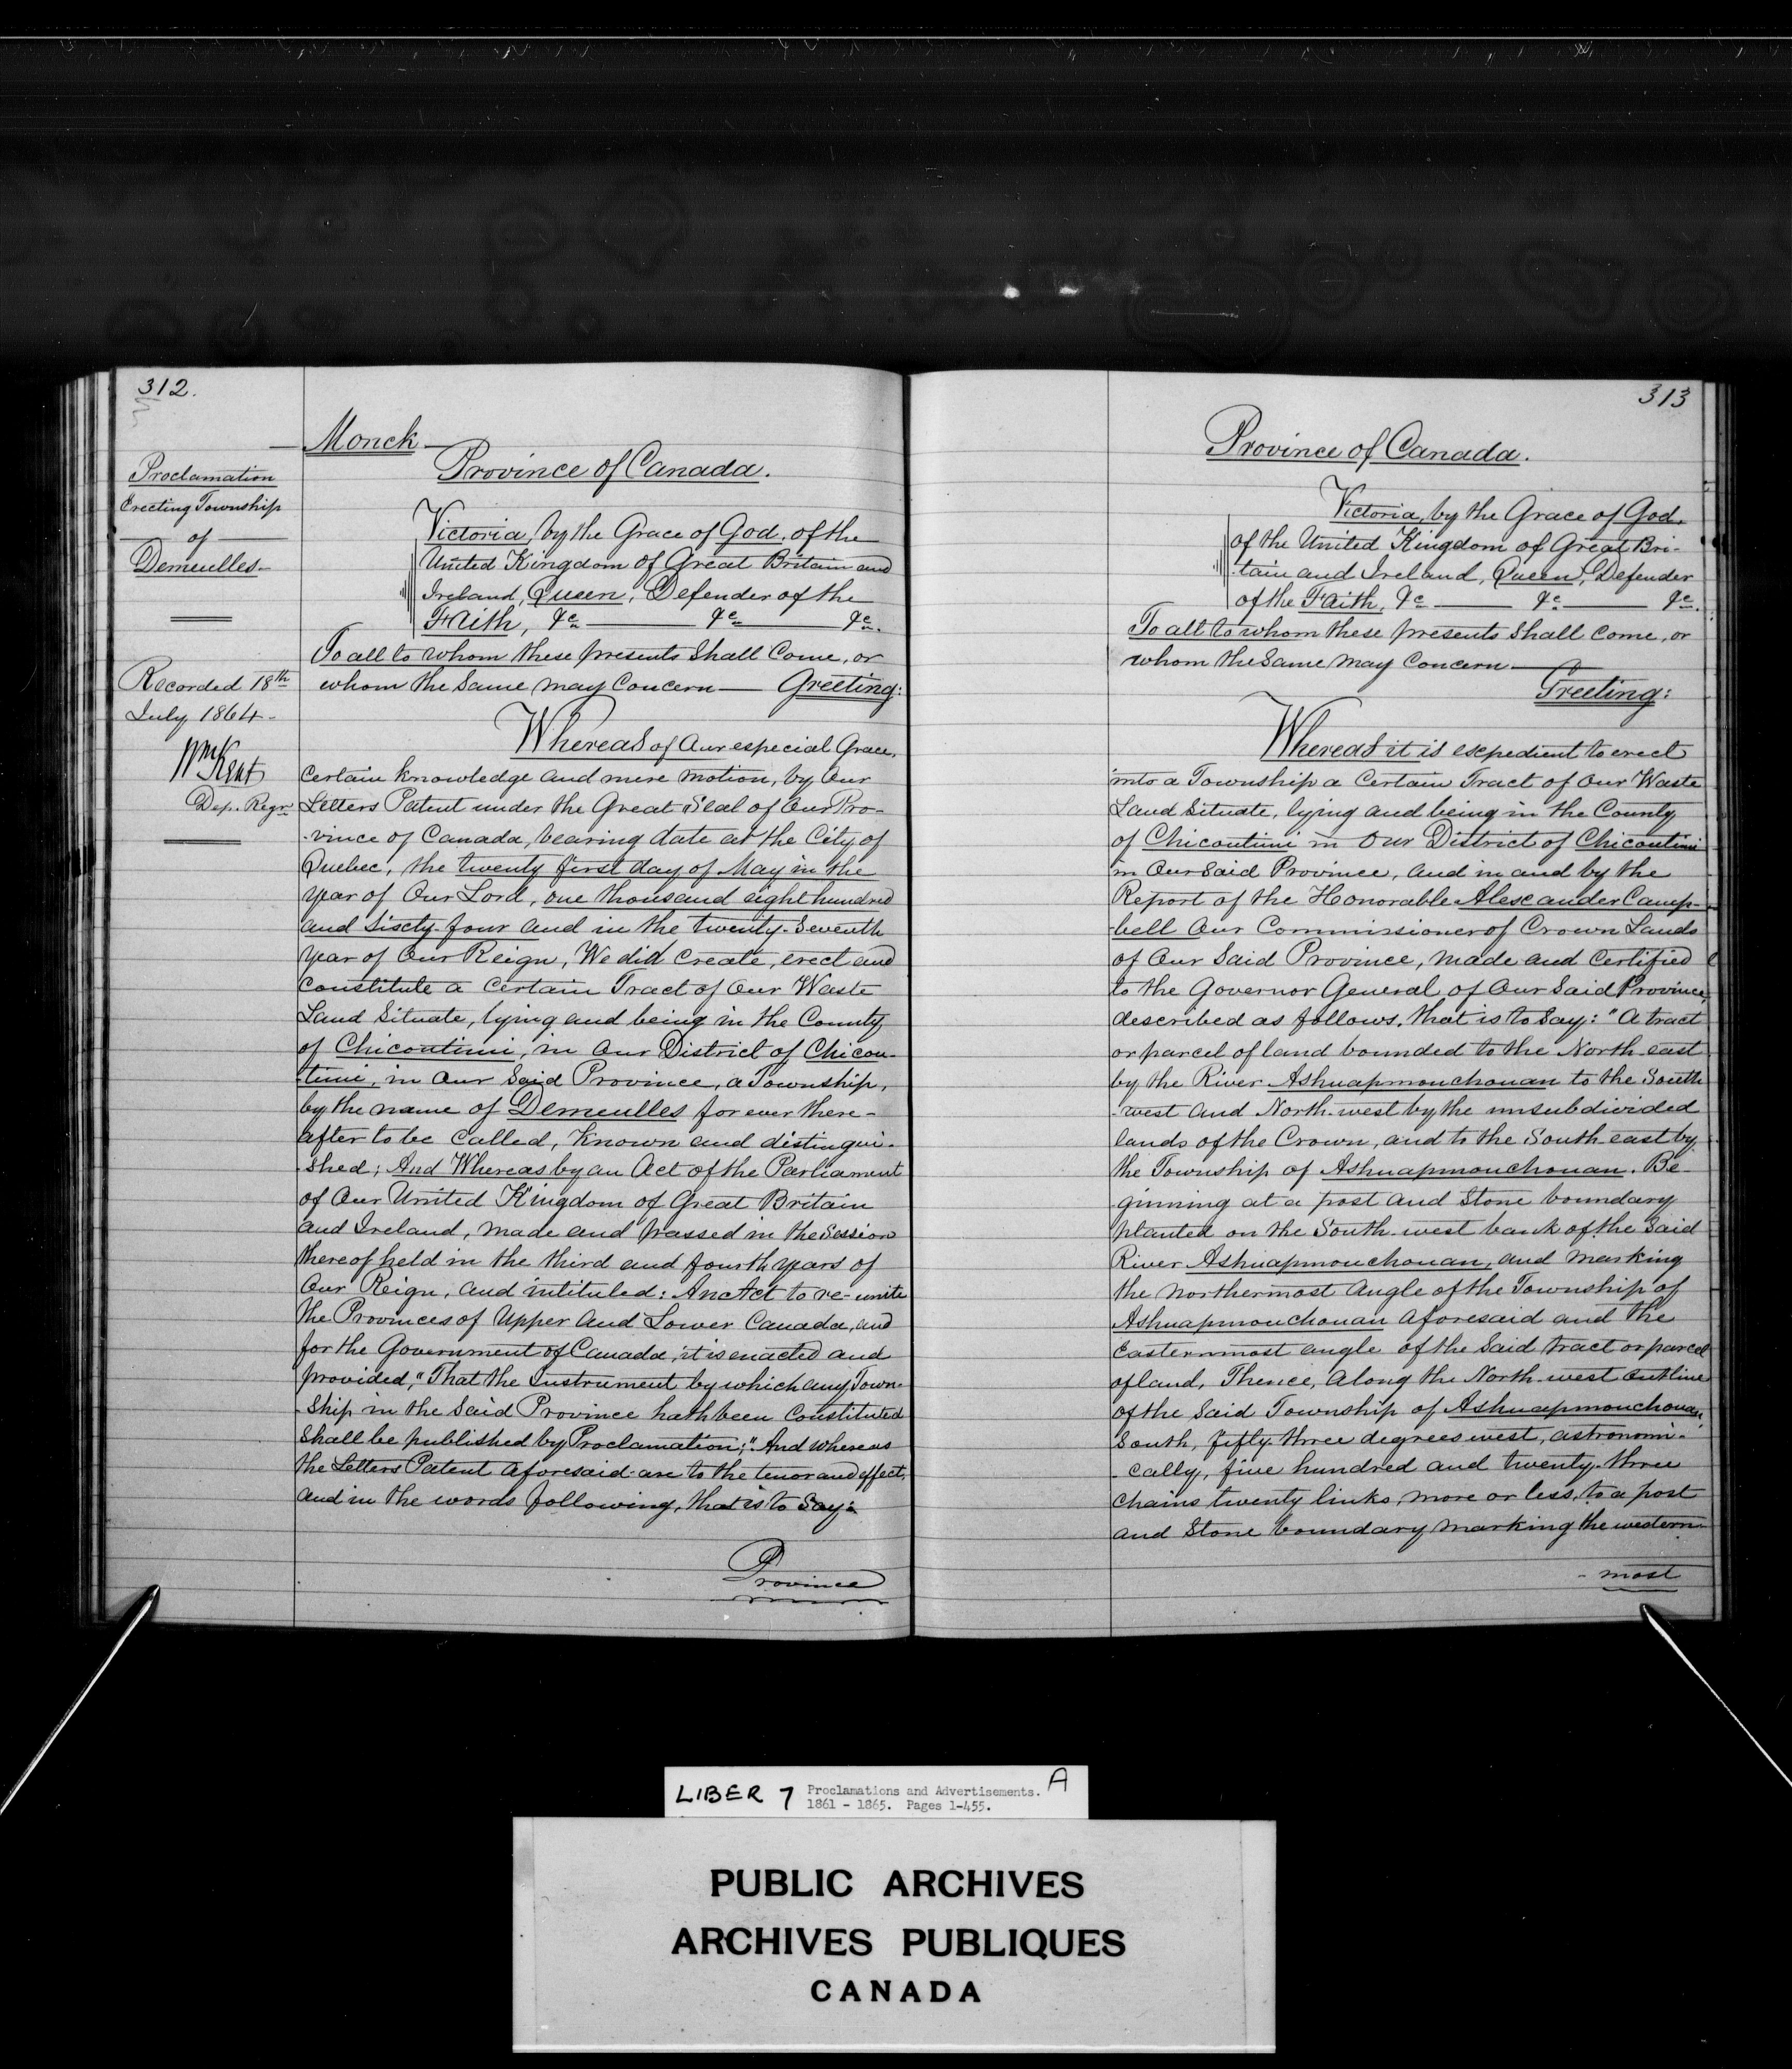 312.
Monck
Province of Canada.
Proclamation
Erecting Township
of
Demeulles
Recorded 18th
July 1864.
Wm Kent
Dep. Regr
Victoria, by the Grace of God, of the
United Kingdom of Great Britain and
Ireland, Queen, Defender of the
Faith, &c &c &c.
To all to whom these presents shall come, or
whom the same may concern — Greeting:
Whereas of Our especial Grace,
certain knowledge and mere motion, by Our
Letters Patent under the Great Seal of Our Pro-
-vince of Canada, bearing date at the City of
Quebec, the twenty first day of May in the
year of Our Lord, one thousand eight hundred
and sixty-four and in the twenty-seventh
year of Our Reign, We did create, erect and
constitute a certain Tract of Our Waste
Land situate, lying and being in the County
of Chicoutimi, in Our District of Chicou-
-timi, in Our said Province, a Township,
by the name of Demeulles for ever there-
after to be called, known and distingui-
-shed; And Whereas by an Act of the Parliament
of Our United Kingdom of Great Britain
and Ireland, made and passed in the Session
thereof held in the third and fourth years of
Our Reign, and intituled: An Act to re-unite
the Provinces of Upper and Lower Canada, and
for the Government of Canada, it is enacted and
provided, "That the Instrument by which any Town-
-ship in the said Province hath been constituted
shall be published by Proclamation;" And whereas
the Letters Patent aforesaid are to the tenor and effect,
and in the words following, that is to say:
Province
313
Province of Canada.
Victoria, by the Grace of God,
of the United Kingdom of Great Bri-
-tain and Ireland, Queen, Defender
of the Faith, &c — &c — &c.
To all to whom these presents shall come, or
whom the same may concern —
Greeting:
Whereas it is expedient to erect
into a Township a certain Tract of Our Waste
Land situate, lying and being in the County
of Chicoutimi in Our District of Chicoutimi
in Our said Province, and in and by the
Report of the Honorable Alexander Camp-
-bell Our Commissioner of Crown Lands
of Our said Province, made and certified
to the Governor General of Our said Province,
described as follows, that is to say: "A tract
or parcel of land bounded to the North-east
by the River Ashuapmouchouan to the South
-west and North-west by the unsubdivided
lands of the Crown, and to the South-east by
the Township of Ashuapmouchouan. Be-
ginning at a post and stone boundary
planted on the South-west bank of the said
River Ashuapmouchouan, and marking
the northermost angle of the Township of
Ashuapmouchouan aforesaid and the
Easternmost angle of the said tract or parcel
of land, Thence, along the North-west outline
of the said Township of Ashuapmouchouan,
South, fifty-three degrees west, astronomi-
-cally, five hundred and twenty-three
chains twenty links, more or less, to a post
and stone boundary marking the western-
-most
LIBER 7 Proclamations and Advertisements. A
1861 - 1865. Pages 1-455.
PUBLIC ARCHIVES
ARCHIVES PUBLIQUES
CANADA